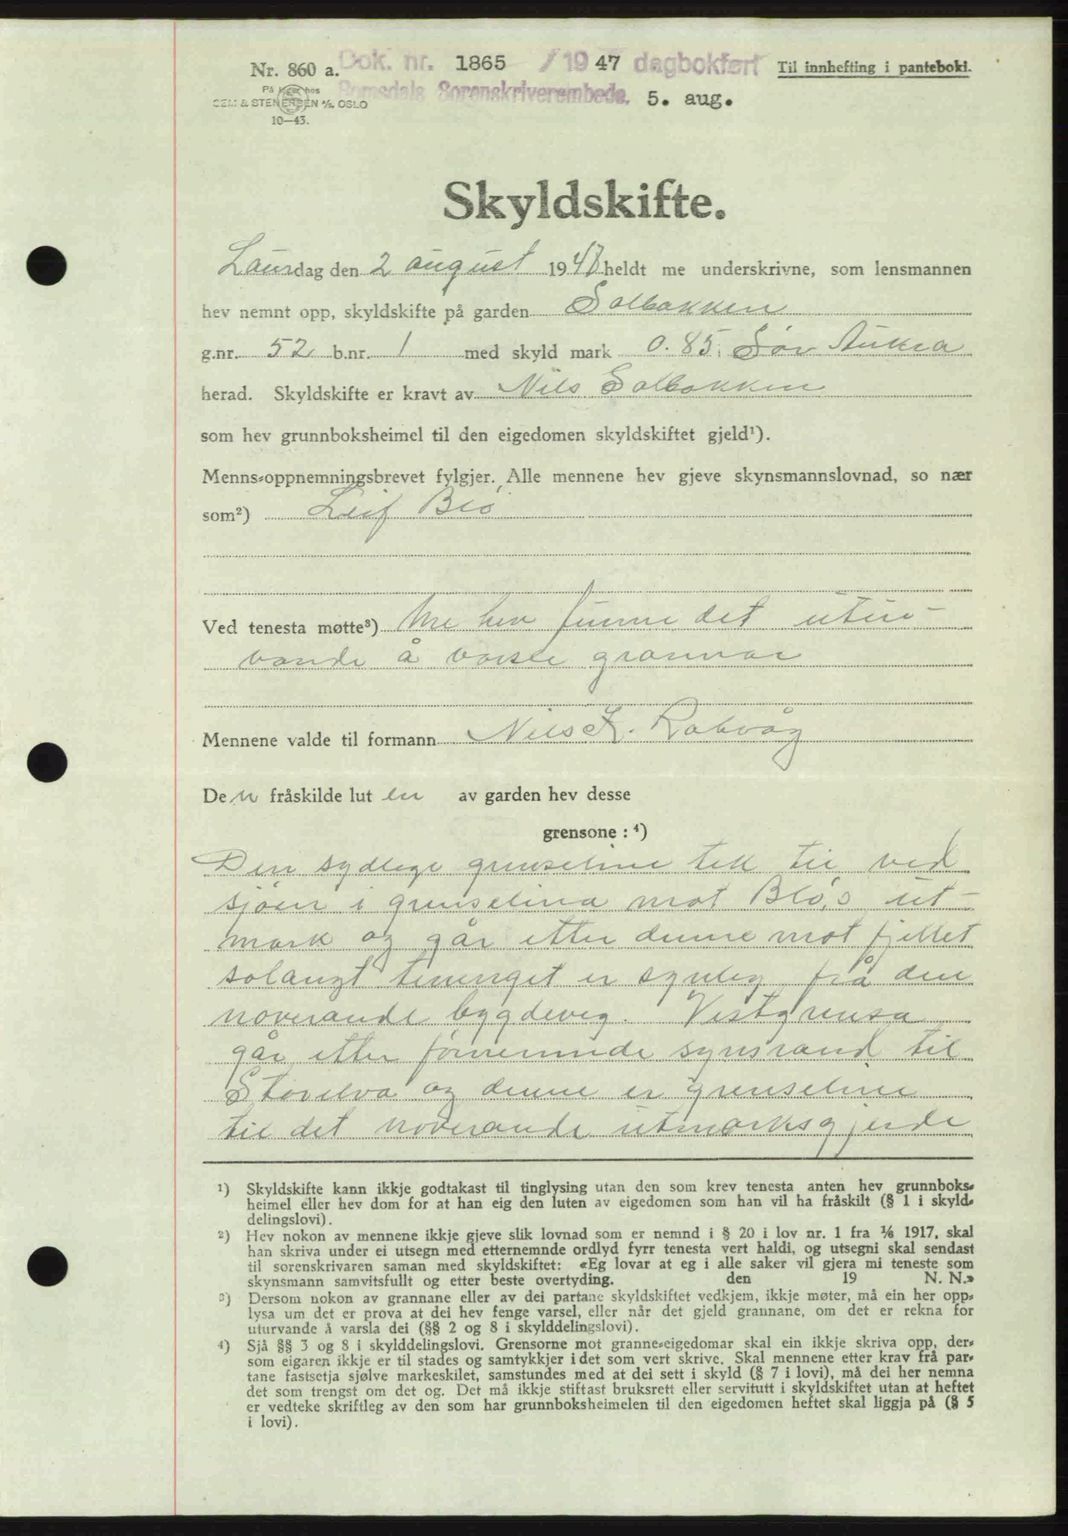 Nr. 860 a. Dok. nr. 1865 / 19 47 dagbokført Til innhefting i panteboki.
På lager hos Romsdals Sorenskriverembede. 5. aug.
SEM & STENERSEN A/S. OSLO
10—43.
Skyldskifte.
Laurdag den 2 august 1947 heldt me underskrivne, som lensmannen
hev nemnt opp, skyldskifte på garden Solbakken
g.nr. 52 b.nr. 1 med skyld mark 0.85. Sør Aukra
herad. Skyldskifte er kravt av Nils Solbakken
som hev grunnboksheimel til den eigedomen skyldskiftet gjeld¹).
Menns-oppnemningsbrevet fylgjer. Alle mennene hev gjeve skynsmannslovnad, so nær
som²) Leif Blö
Ved tenesta møtte³) Me hev funne det utur-
vande å varsle grannar
Mennene valde til formann Nils K. Rakvåg
De n fråskilde lut en av garden hev desse
grensone : ⁴)
Den sydlege grenseline tek til ved
sjøen i grenselina mot Blö,s ut-
mark og går etter denne mot fjellet
solangt terenget er synleg frå den
noverande bygdeveg. Vestgrensa
går etter førnemnde synsrand til
Storelva og denne er grenseline
til det noverande utmarksgjerde
¹) Skyldskifte kann ikkje godtakast til tinglysing utan den som krev tenesta anten hev grunnboks-
heimel eller hev dom for at han eig den luten av eigedomen som han vil ha fråskilt (§ 1 i skyld-
delingslovi).
²) Hev nokon av mennene ikkje gjeve slik lovnad som er nemnd i § 20 i lov nr. 1 fra 1/6 1917, skal
han skriva under ei utsegn med etternemnde ordlyd fyrr tenesta vert haldi, og utsegni skal sendast
til sorenskrivaren saman med skyldskiftet: «Eg lovar at eg i alle saker vil gjera mi teneste som
skynsmann samvitsfullt og etter beste overtyding. den 19 N. N.»
³) Dersom nokon av grannane eller av dei partane skyldskiftet vedkjem, ikkje møter, må ein her opp-
lysa um det er prova at dei hev fenge varsel, eller når det gjeld grannane, om det er rekna for
uturvande å varsla dei (§§ 2 og 8 i skylddelingslovi).
⁴) Sjå §§ 3 og 8 i skylddelingslovi. Grensorne mot granne-eigedomar skal ein ikkje skriva opp, der-
som eigaren ikkje er til stades og samtykkjer i det som vert skrive. Skal mennene etter krav frå par-
tane fastsetja sjølve markeskilet, samstundes med at dei sett i skyld (§ 7 i lovi), må dei her nemna
det som trengst om det og. Det må ikkje stiftast bruksrett eller servitutt i skyldskiftet utan at heftet
er vedteke skriftleg av den som har grunnboksheimelen til den eigedomen heftet skal liggja på (§ 5
i lovi).